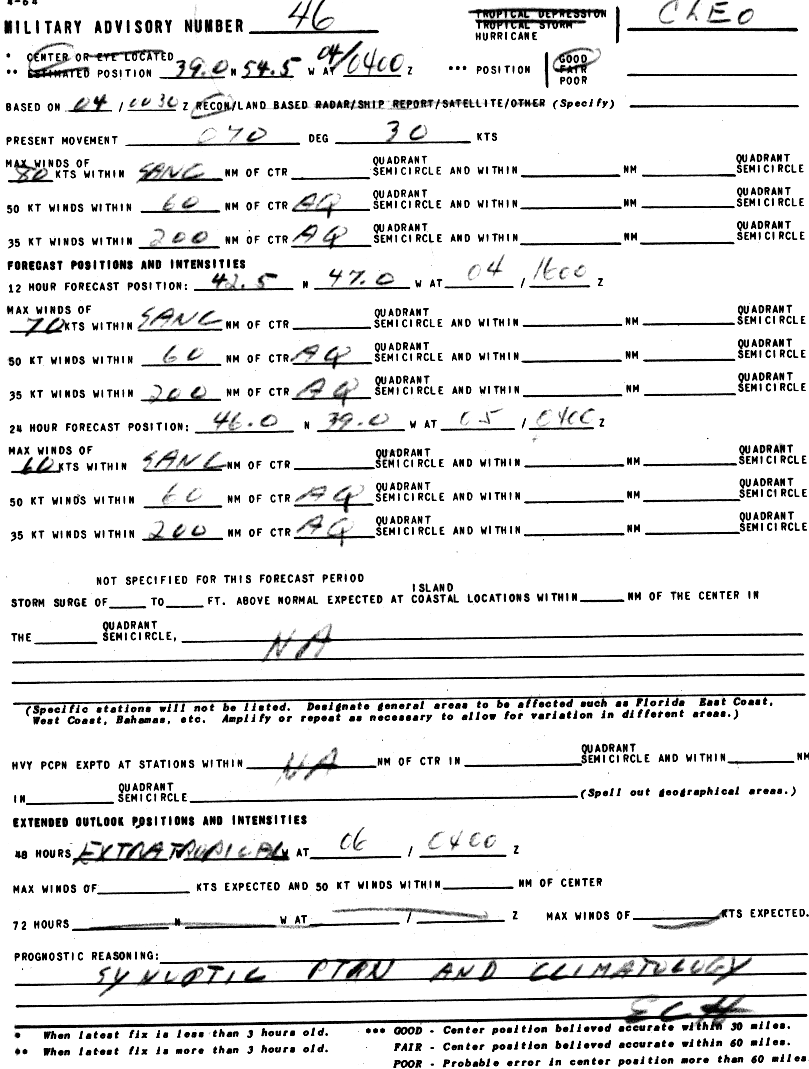 4-64
MILITARY ADVISORY NUMBER 46 TROPICAL DEPRESSION TROPICAL STORM HURRICANE CLEO
* CENTER OR EYE LOCATED
** ESTIMATED POSITION 39.0 N 54.5 W AT 04/0400 Z *** POSITION GOOD FAIR POOR
BASED ON 04 / 0030 Z RECON/LAND BASED RADAR/SHIP REPORT/SATELLITE/OTHER (Specify)
PRESENT MOVEMENT 070 DEG 30 KTS
MAX WINDS OF QUADRANT QUADRANT
80 KTS WITHIN SANC NM OF CTR SEMICIRCLE AND WITHIN NM SEMICIRCLE
QUADRANT QUADRANT
50 KT WINDS WITHIN 60 NM OF CTR AQ SEMICIRCLE AND WITHIN NM SEMICIRCLE
QUADRANT QUADRANT
35 KT WINDS WITHIN 200 NM OF CTR AQ SEMICIRCLE AND WITHIN NM SEMICIRCLE
FORECAST POSITIONS AND INTENSITIES
12 HOUR FORECAST POSITION: 42.5 N 47.0 W AT 04 / 1600 Z
MAX WINDS OF QUADRANT QUADRANT
70 KTS WITHIN SANC NM OF CTR SEMICIRCLE AND WITHIN NM SEMICIRCLE
QUADRANT QUADRANT
50 KT WINDS WITHIN 60 NM OF CTR AQ SEMICIRCLE AND WITHIN NM SEMICIRCLE
QUADRANT QUADRANT
35 KT WINDS WITHIN 200 NM OF CTR AQ SEMICIRCLE AND WITHIN NM SEMICIRCLE
24 HOUR FORECAST POSITION: 46.0 N 39.0 W AT 05 / 0400 Z
MAX WINDS OF QUADRANT QUADRANT
60 KTS WITHIN SANC NM OF CTR SEMICIRCLE AND WITHIN NM SEMICIRCLE
QUADRANT QUADRANT
50 KT WINDS WITHIN 60 NM OF CTR AQ SEMICIRCLE AND WITHIN NM SEMICIRCLE
QUADRANT QUADRANT
35 KT WINDS WITHIN 200 NM OF CTR AQ SEMICIRCLE AND WITHIN NM SEMICIRCLE
NOT SPECIFIED FOR THIS FORECAST PERIOD
ISLAND
STORM SURGE OF TO FT. ABOVE NORMAL EXPECTED AT COASTAL LOCATIONS WITHIN NM OF THE CENTER IN
QUADRANT
THE SEMICIRCLE, NA
(Specific stations will not be listed. Designate general areas to be affected such as Florida East Coast,
West Coast, Bahamas, etc. Amplify or repeat as necessary to allow for variation in different areas.)
QUADRANT
HVY PCPN EXPTD AT STATIONS WITHIN NA NM OF CTR IN SEMICIRCLE AND WITHIN NM
QUADRANT
IN SEMICIRCLE (Spell out geographical areas.)
EXTENDED OUTLOOK POSITIONS AND INTENSITIES
48 HOURS EXTRATROPICAL W AT 06 / 0400 Z
MAX WINDS OF KTS EXPECTED AND 50 KT WINDS WITHIN NM OF CENTER
72 HOURS N W AT / Z MAX WINDS OF KTS EXPECTED.
PROGNOSTIC REASONING:
SYNOPTIC PTRN AND CLIMATOLOGY
ECH
* When latest fix is less than 3 hours old. *** GOOD - Center position believed accurate within 30 miles.
** When latest fix is more than 3 hours old. FAIR - Center position believed accurate within 60 miles.
POOR - Probable error in center position more than 60 miles